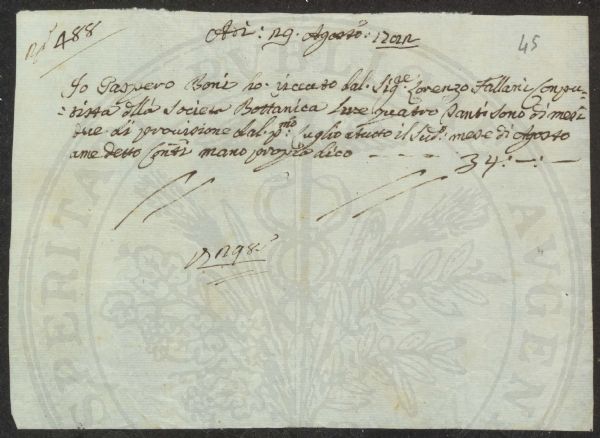 N.° 488
Adi: 29. Agosto: 45
Io Gaspero Boni ho riceuto dal: Sig.re Lorenzo Fallani Conpu=
=tista della Societa Bottanica Lire quatro tanti sono di mesi
due di provisione dal p.mo Luglio a tutto il Sud.o mese di Agosto
a me detto Con.ti mano propria dico — — — — 34:—:—
298
SPERITA PUBLI AUGEN